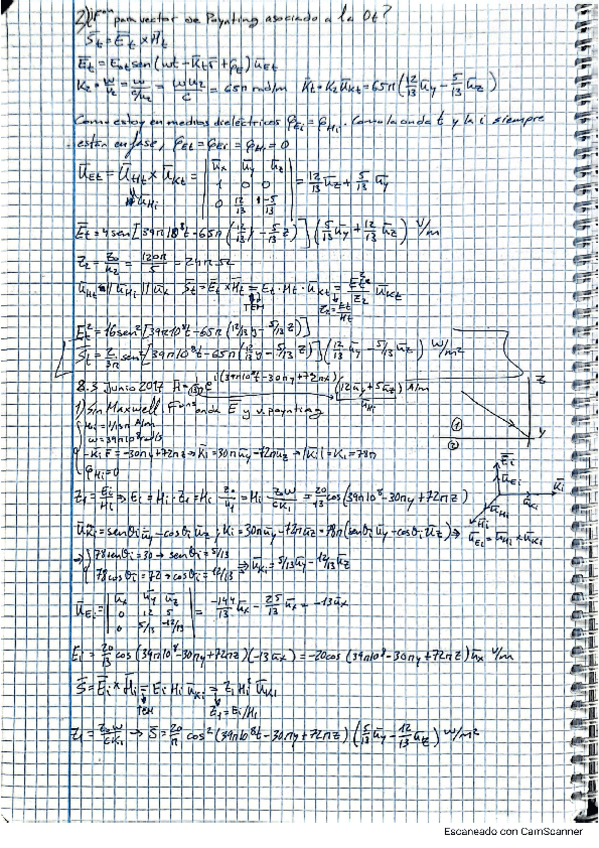 2) ¿Fᵒⁿ para vector de Poynting asociado a la Ot?
S̄t = Ēt × H̄t
Ēt = Eot sen(wt - K̄t r̄ + φEt) ūEt
K2 = w/u2 = w/(c/n2) = w n2/c = 65π rad/m K̄t = K2 ūKt = 65π(12/13 ūy - 5/13 ūz)
Como estoy en medios dieléctricos φEi = φHi. Como la onda t y la i siempre
están en fase, φEt = φEi = φHi = 0
ūEt = ūHt × ūKt = | ūx ūy ūz | = 12/13 ūz + 5/13 ūy
ūHi | 1 0 0 |
| 0 12/13 -5/13 |
Ēt = 4 sen[39π10⁸t - 65π(12/13 y - 5/13 z)](5/13 ūy + 12/13 ūz) V/m
Z2 = Z0/n2 = 120π/5 = 24π Ω
ūHt || ūHi || ūx S̄t = Ēt × H̄t = Et · Ht · ūKt = Et²/Z2 ūKt
TEM Z2 = Et/Ht
Et² = 16 sen²[39π10⁸t - 65π(12/13 y - 5/13 z)]
S̄t = 2/3π sen²[39π10⁸t - 65π(12/13 y - 5/13 z)](12/13 ūy - 5/13 ūz) W/m²
8.3 Junio 2017 H̄ = e^j(39π10⁸t - 30πy + 72πz) (12ūy + 5ūz) A/m
ūHi
1) Sin Maxwell. Fᵘⁿᶜ onda Ē y v. poynting
Hi = 1/13π A/m
w = 39π10⁸ rad/s
-K̄i r̄ = -30πy + 72πz → K̄i = 30πūy - 72πūz → |K̄i| = K1 = 78π
φHi = 0
Z1 = Ei/Hi ⇒ Ei = Hi · Z1 = Hi Z0/n1 = Hi Z0w/cK1 = 20/13 cos(39π10⁸ - 30πy + 72πz)
ūKi = senθi ūy - cosθi ūz ; Ki = 30πūy - 72πūz = 78π(senθi ūy - cosθi ūz) ⇒
⇒ 78 senθi = 30 → senθi = 5/13
78 cosθi = 72 → cosθi = 12/13 ⇒ ūKi = 5/13 ūy - 12/13 ūz
ūEi = | ūx ūy ūz | = -144/13 ūx - 25/13 ūx = -13ūx
| 0 12 5 |
| 0 5/13 -12/13 |
Ei = 20/13 cos(39π10⁸ - 30πy + 72πz)(-13ūx) = -20cos(39π10⁸ - 30πy + 72πz) ūx V/m
S̄ = Ēi × H̄i = Ei Hi ūKi = Z1 Hi² ūKi
TEM Z1 = Ei/Hi
Z1 = Z0w/cK1 → S̄ = 20/π cos²(39π10⁸t - 30πy + 72πz)(5/13 ūy - 12/13 ūz) W/m²
Z
Y
①
②
Ēi
ūEi
K̄i
ūKi
ūHi
H̄i
ūEi = ūHi × ūKi
Escaneado con CamScanner